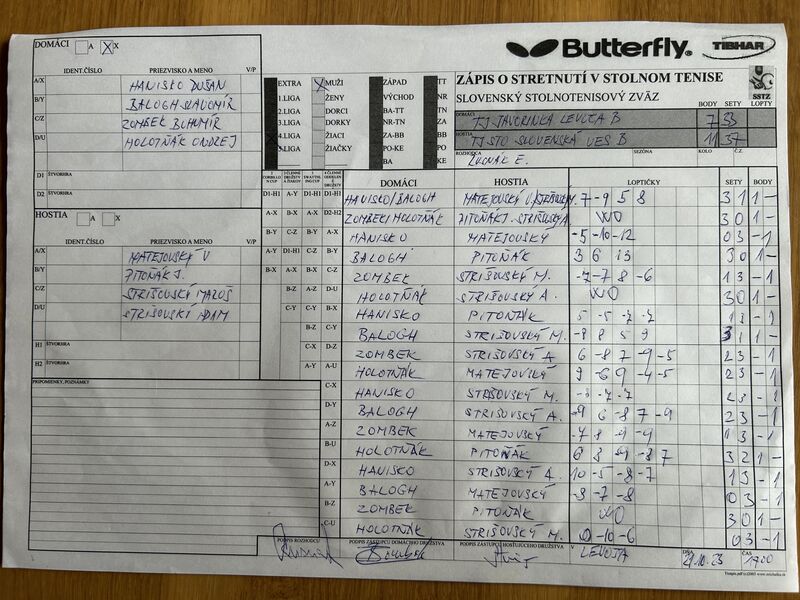 DOMÁCI A X X
Butterfly. TIBHAR
IDENT.ČÍSLO PRIEZVISKO A MENO V/P
A/X HANISKO DUŠAN
B/Y BALOGH SLAVOMÍR
C/Z ZOMBEK BOHUMÍR
D/U HOLOTŇÁK ONDREJ
D1 ŠTVORHRA
D2 ŠTVORHRA
EXTRA X MUŽI ZÁPAD TT
1.LIGA ŽENY VÝCHOD NR
2.LIGA DORCI BA-TT TN
3.LIGA DORKY NR-TN ZA
4.LIGA ŽIACI ZA-BB BB
ŽIAČKY PO-KE PO
BA KE
ZÁPIS O STRETNUTÍ V STOLNOM TENISE
SLOVENSKÝ STOLNOTENISOVÝ ZVÄZ
SSTZ
BODY SETY LOPTY
DOMÁCI TJ JAVORINKA LEVOČA B 7 33
HOSTIA TJ STO SLOVENSKÁ VES B 11 37
ROZHODCA E. SEZÓNA KOLO Č.Z.
HOSTIA A X
IDENT.ČÍSLO PRIEZVISKO A MENO V/P
A/X MATEJOVSKÝ V
B/Y PITOŇÁK J.
C/Z STRIŠOVSKÝ MAROŠ
D/U STRIŠOVSKÝ ADAM
H1 ŠTVORHRA
H2 ŠTVORHRA
PRIPOMIENKY, POZNÁMKY
DOMÁCI HOSTIA LOPTIČKY SETY BODY
D1-H1 A-Y D1-H1 D1-H1 HANISKO/BALOGH MATEJOVSKÝ V./ 7 -9 5 8 3 1 1 -
A-X B-X A-X D2-H2 ZOMBEK/HOLOTŇÁK PITOŇÁK J. STRIŠOVSKÝ A. WO 3 0 1 -
B-Y C-Z B-Y A-X HANISKO MATEJOVSKÝ -5 -10 -12 0 3 - 1
A-Y D1-H1 C-Z B-Y BALOGH PITOŇÁK 3 6 13 3 0 1 -
B-X A-X B-X C-Z ZOMBEK STRIŠOVSKÝ M. -7 -7 8 -6 1 3 - 1
B-Z A-Z D-U HOLOTŇÁK STRIŠOVSKÝ A. WO 3 0 1 -
C-Y C-Y X-Y HANISKO PITOŇÁK 5 -5 -7 -7 1 3 - 1
B-Z C-Y BALOGH STRIŠOVSKÝ M. -8 8 5 9 3 1 1 -
C-X D-Z ZOMBEK STRIŠOVSKÝ A 6 -8 7 -9 -5 2 3 - 1
A-Y A-U HOLOTŇÁK MATEJOVSKÝ 9 -6 9 -4 -5 2 3 - 1
C-X HANISKO STRIŠOVSKÝ M. -7 -7 3 - 1
D-Y BALOGH STRIŠOVSKÝ A. -9 6 -8 7 -9 2 3 - 1
A-Z ZOMBEK MATEJOVSKÝ -7 8 -9 -9 1 3 - 1
B-U HOLOTŇÁK PITOŇÁK 6 8 -9 -8 7 3 2 1 -
D-X HANISKO STRIŠOVSKÝ A. 10 -5 -8 -7 1 3 - 1
A-Y BALOGH MATEJOVSKÝ -7 -8 0 3 - 1
B-Z ZOMBEK PITOŇÁK WO 3 0 1 -
C-U HOLOTŇÁK STRIŠOVSKÝ M. -10 -6 0 3 - 1
PODPIS ROZHODCU PODPIS ZÁSTUPCU DOMÁCEHO DRUŽSTVA PODPIS ZÁSTUPCU HOSŤUJÚCEHO DRUŽSTVA V LEVOČA DŇA 21.10.23 ČAS 17:00